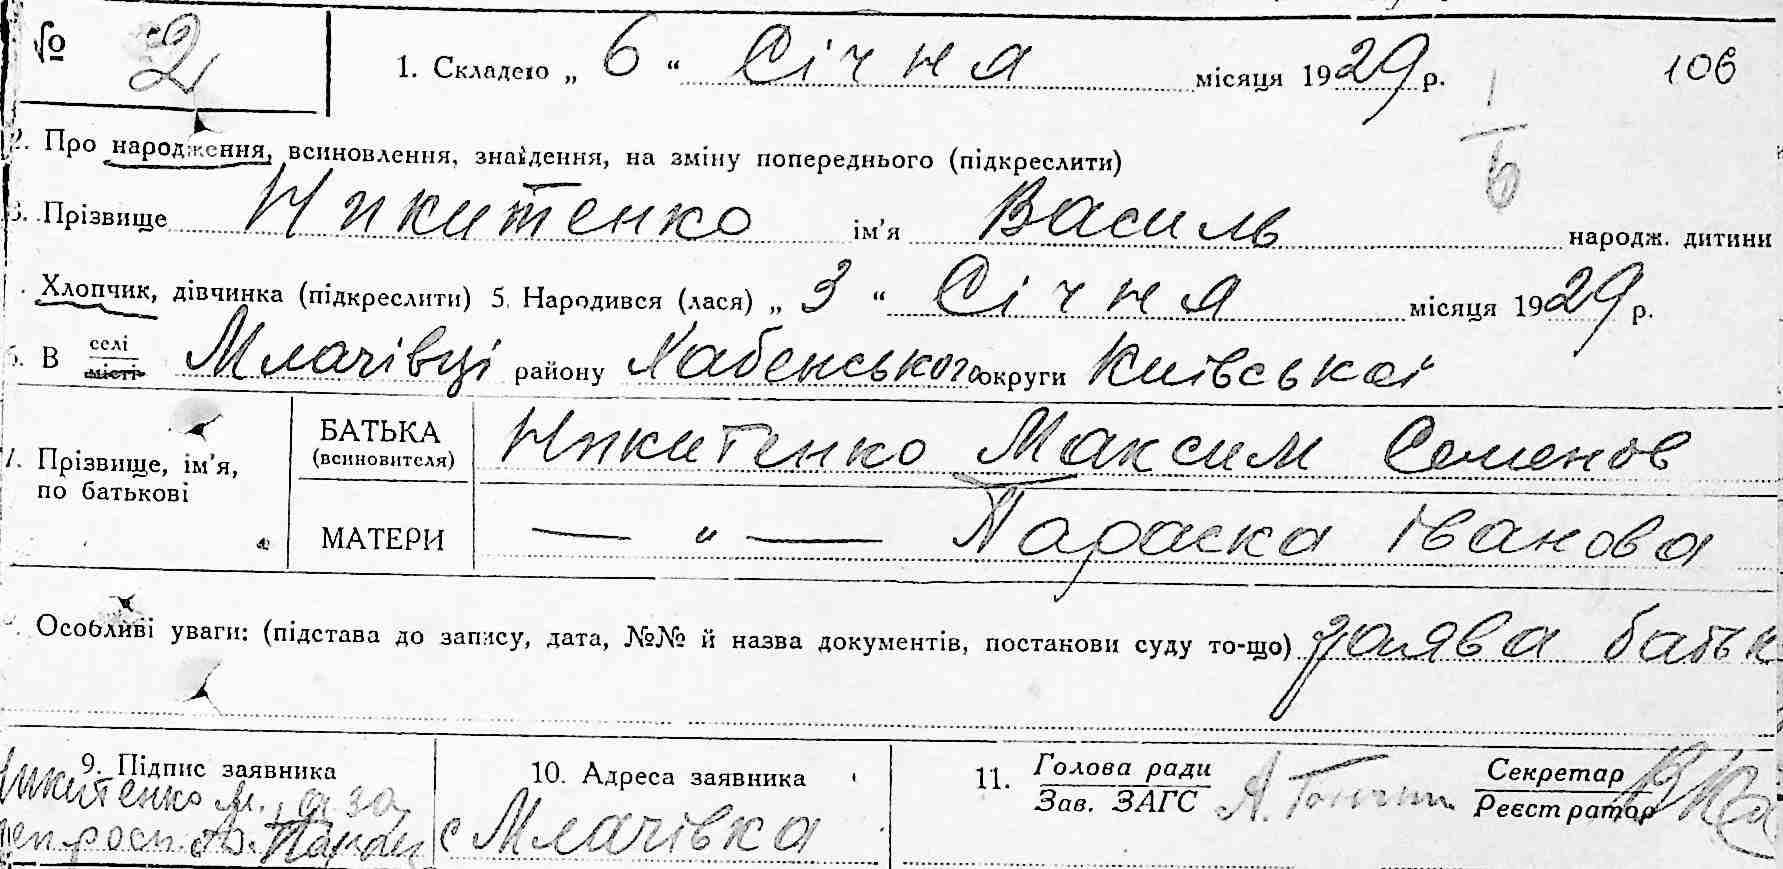 № 2
1. Складено „ 6 “ Січня місяця 1929 р.
106
1
6
2. Про народження, всиновлення, знайдення, на зміну попереднього (підкреслити)
3. Прізвище Никитенко ім’я Василь народж. дитини
Хлопчик, дівчинка (підкреслити) 5. Народився (лася) „ 3 “ Січня місяця 1929 р.
6. В селі місті Млачівці району Хабенського округи Київської
7. Прізвище, ім’я, по батькові
БАТЬКА (всиновителя) Никитенко Максим Семенов
МАТЕРИ — „ — Параска Іванова
Особливі уваги: (підстава до запису, дата, №№ й назва документів, постанови суду то-що) заява батьк
9. Підпис заявника
Никитенко М., а за
10. Адреса заявника
с Млачівка
11. Голова ради
Зав. ЗАГС
Секретар
Реєстратор